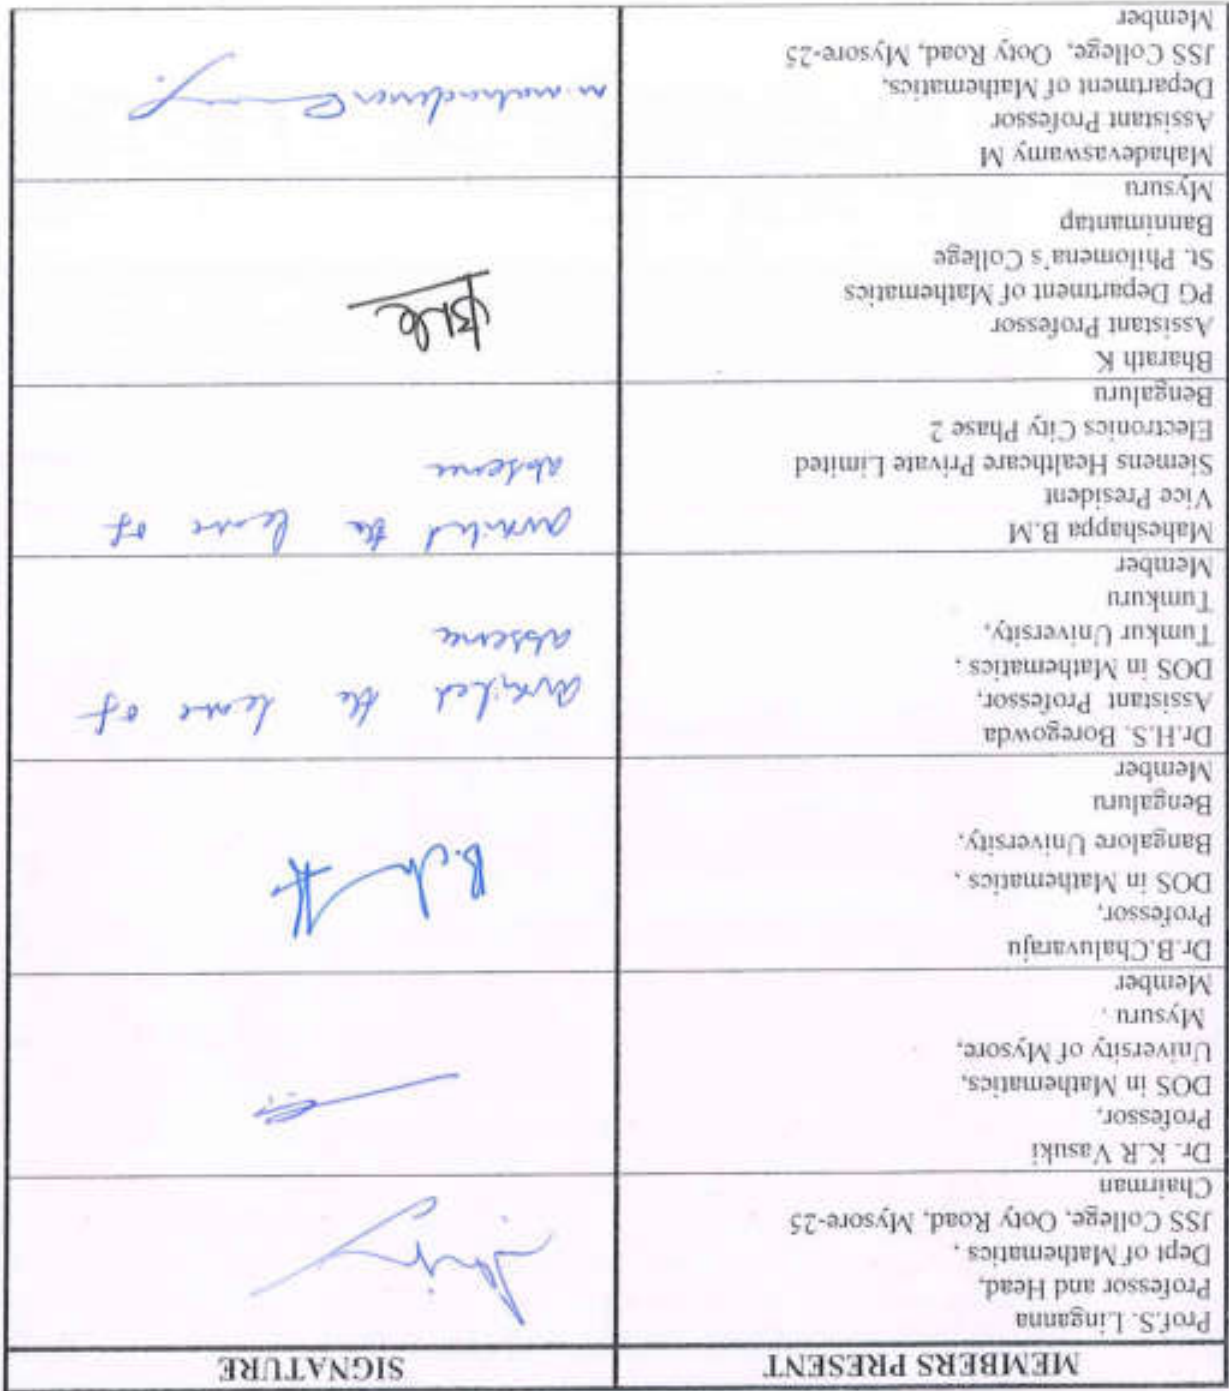 MEMBERS PRESENT SIGNATURE
Prof.S. Linganna
Professor and Head,
Dept of Mathematics ,
JSS College, Ooty Road, Mysore-25
Chairman
Dr. K.R Vasuki
Professor,
DOS in Mathematics,
University of Mysore,
Mysuru .
Member
Dr.B.Chaluvaraju
Professor,
DOS in Mathematics ,
Bangalore University,
Bengaluru
Member
Dr.H.S. Boregowda
Assistant Professor,
DOS in Mathematics ,
Tumkur University,
Tumkuru
Member
availed the leave of
absence
Maheshappa B.M
Vice President
Siemens Healthcare Private Limited
Electronics City Phase 2
Bengaluru
availed the leave of
absence
Bharath K
Assistant Professor
PG Department of Mathematics
St. Philomena's College
Bannimantap
Mysuru
Mahadevaswamy M
Assistant Professor
Department of Mathematics,
JSS College, Ooty Road, Mysore-25
Member